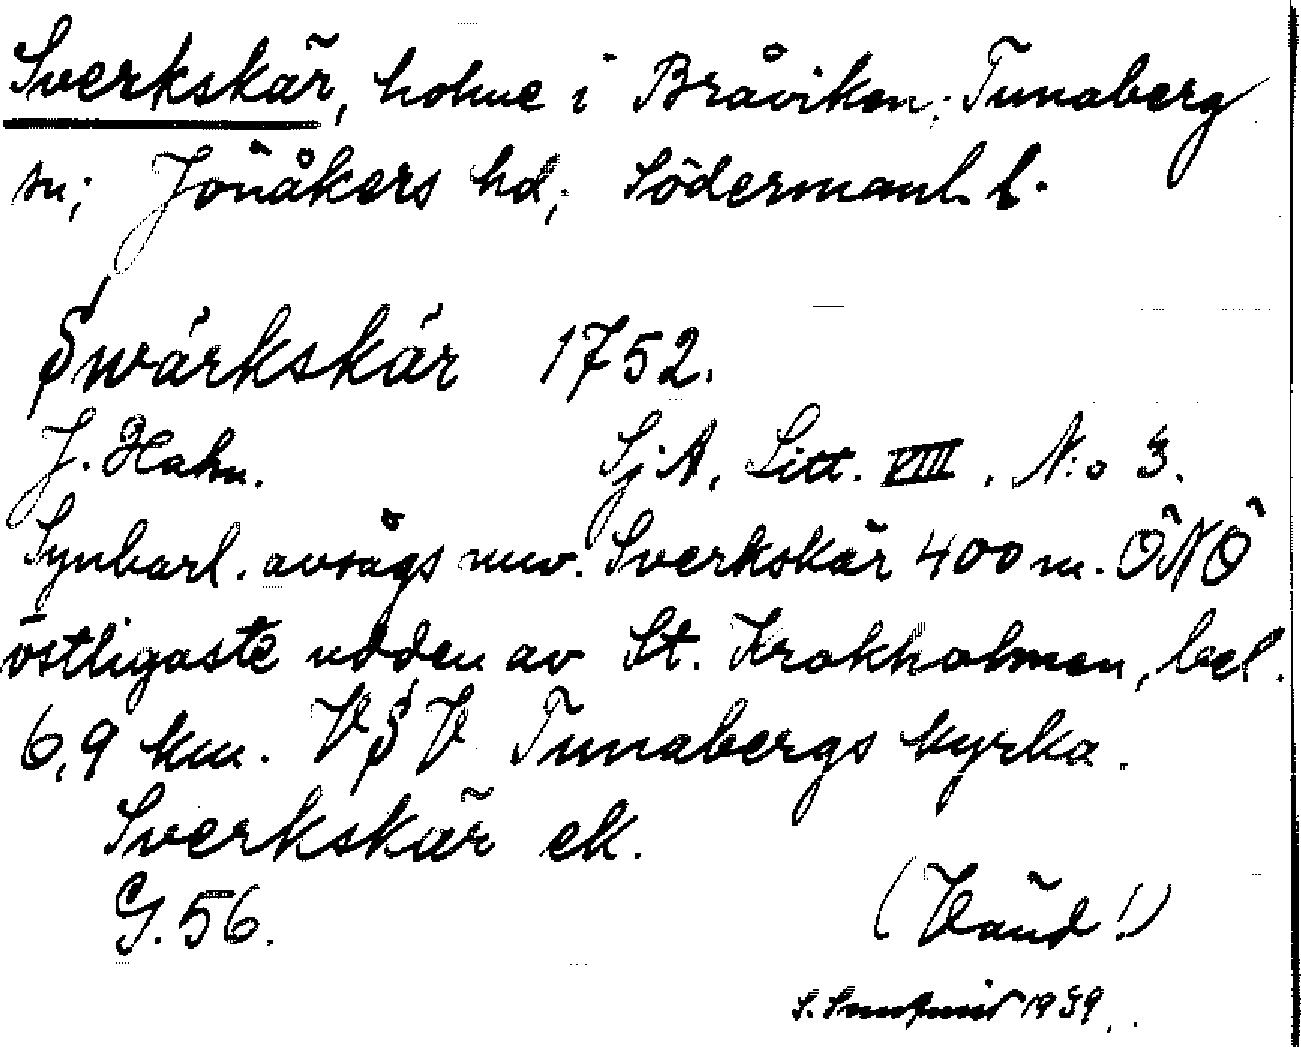 Sverkskär, holme i Bråviken; Tunaberg
sn; Jönåkers hd; Södermanl. l.
Swärkskär 1752.
J. Hahn. SjA, Litt. VIII. N:o 3.
Synbarl. avsågs nuv. Sverkskär 400 m. ÖNÖ
östligaste udden av St. Krokholmen, bel.
6,9 km. VSV Tunabergs kyrka.
Sverkskär ek.
G. 56. (Vänd!)
S. 1939